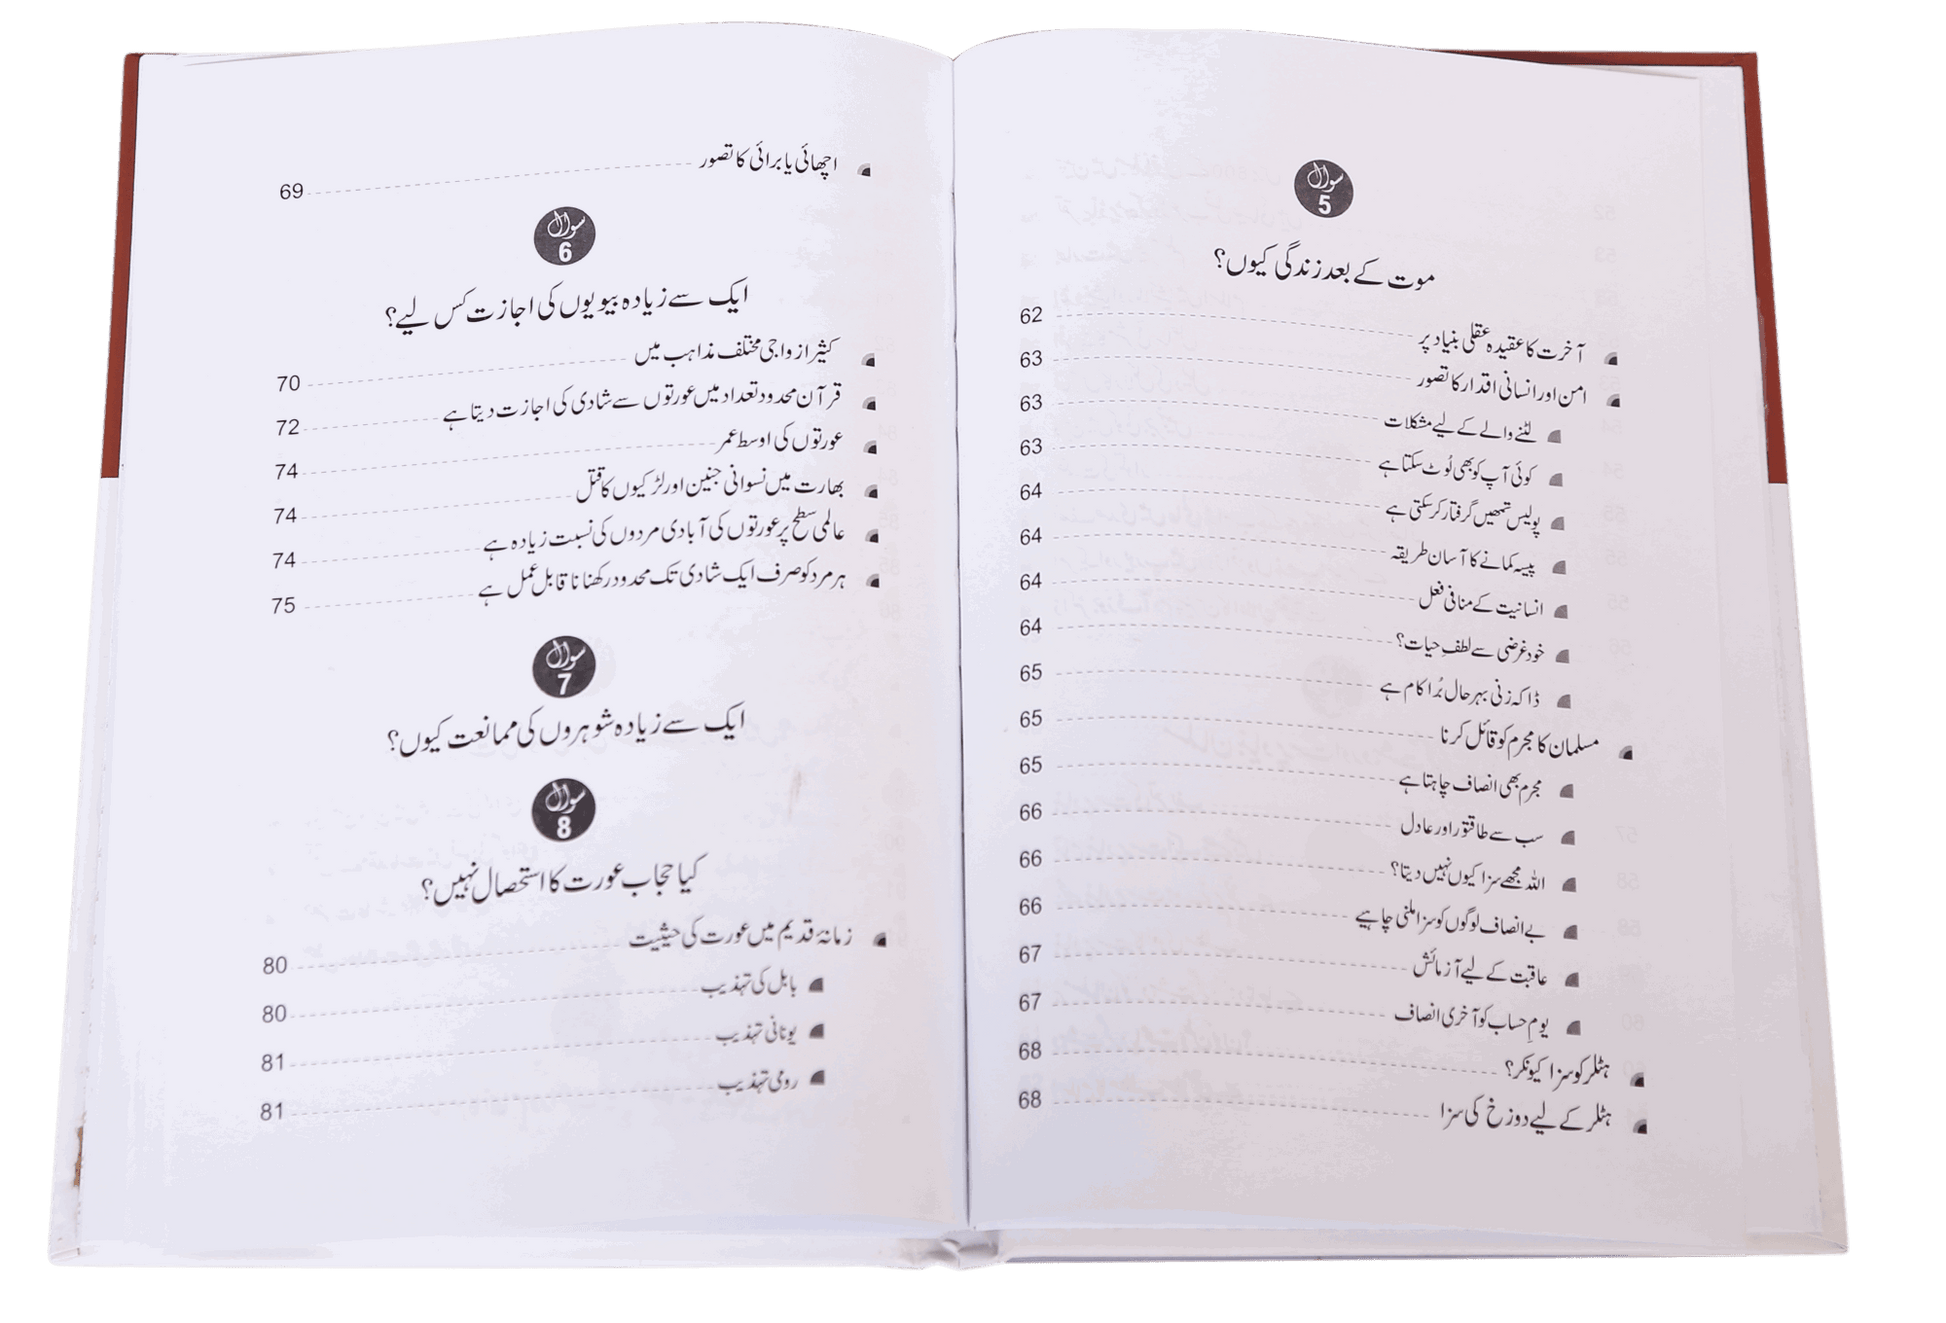 سوال
5
موت کے بعد زندگی کیوں؟
آخرت کا عقیدہ عقلی بنیاد پر 62
امن اور انسانی اقدار کا تصور 63
لٹنے والے کے لیے مشکلات 63
کوئی آپ کو بھی لُوٹ سکتا ہے 63
پولیس تمھیں گرفتار کرسکتی ہے 64
پیسہ کمانے کا آسان طریقہ 64
انسانیت کے منافی فعل 64
خود غرضی سے لطفِ حیات؟ 64
ڈاکہ زنی بہرحال بُرا کام ہے 65
مسلمان کا مجرم کو قائل کرنا 65
مجرم بھی انصاف چاہتا ہے 65
سب سے طاقتور اور عادل 66
اللہ مجھے سزا کیوں نہیں دیتا؟ 66
بے انصاف لوگوں کو سزا ملنی چاہیے 66
عاقبت کے لیے آزمائش 67
یومِ حساب کو آخری انصاف 67
ہٹلر کو سزا کیونکر؟ 68
ہٹلر کے لیے دوزخ کی سزا 68
اچھائی یا برائی کا تصور 69
سوال
6
ایک سے زیادہ بیویوں کی اجازت کس لیے؟
کثیر ازواجی مختلف مذاہب میں 70
قرآن محدود تعداد میں عورتوں سے شادی کی اجازت دیتا ہے 72
عورتوں کی اوسط عمر 74
بھارت میں نسوانی جنین اور لڑکیوں کا قتل 74
عالمی سطح پر عورتوں کی آبادی مردوں کی نسبت زیادہ ہے 74
ہر مرد کو صرف ایک شادی تک محدود رکھنا ناقابل عمل ہے 75
سوال
7
ایک سے زیادہ شوہروں کی ممانعت کیوں؟
سوال
8
کیا حجاب عورت کا استحصال نہیں؟
زمانۂ قدیم میں عورت کی حیثیت 80
بابل کی تہذیب 80
یونانی تہذیب 81
رومی تہذیب 81